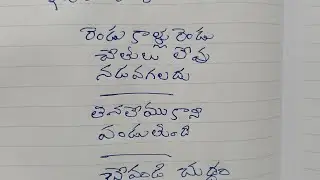 రెండు కాళ్లు రెండు
చేతులు లేవు
నడవగలదు
తినలేము కాని
పండుతుంది
చెప్పండి చూద్దాం